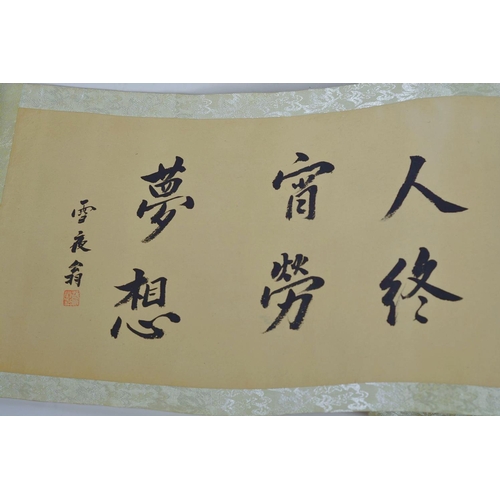 人終
宵勞
夢想
雪夜翁